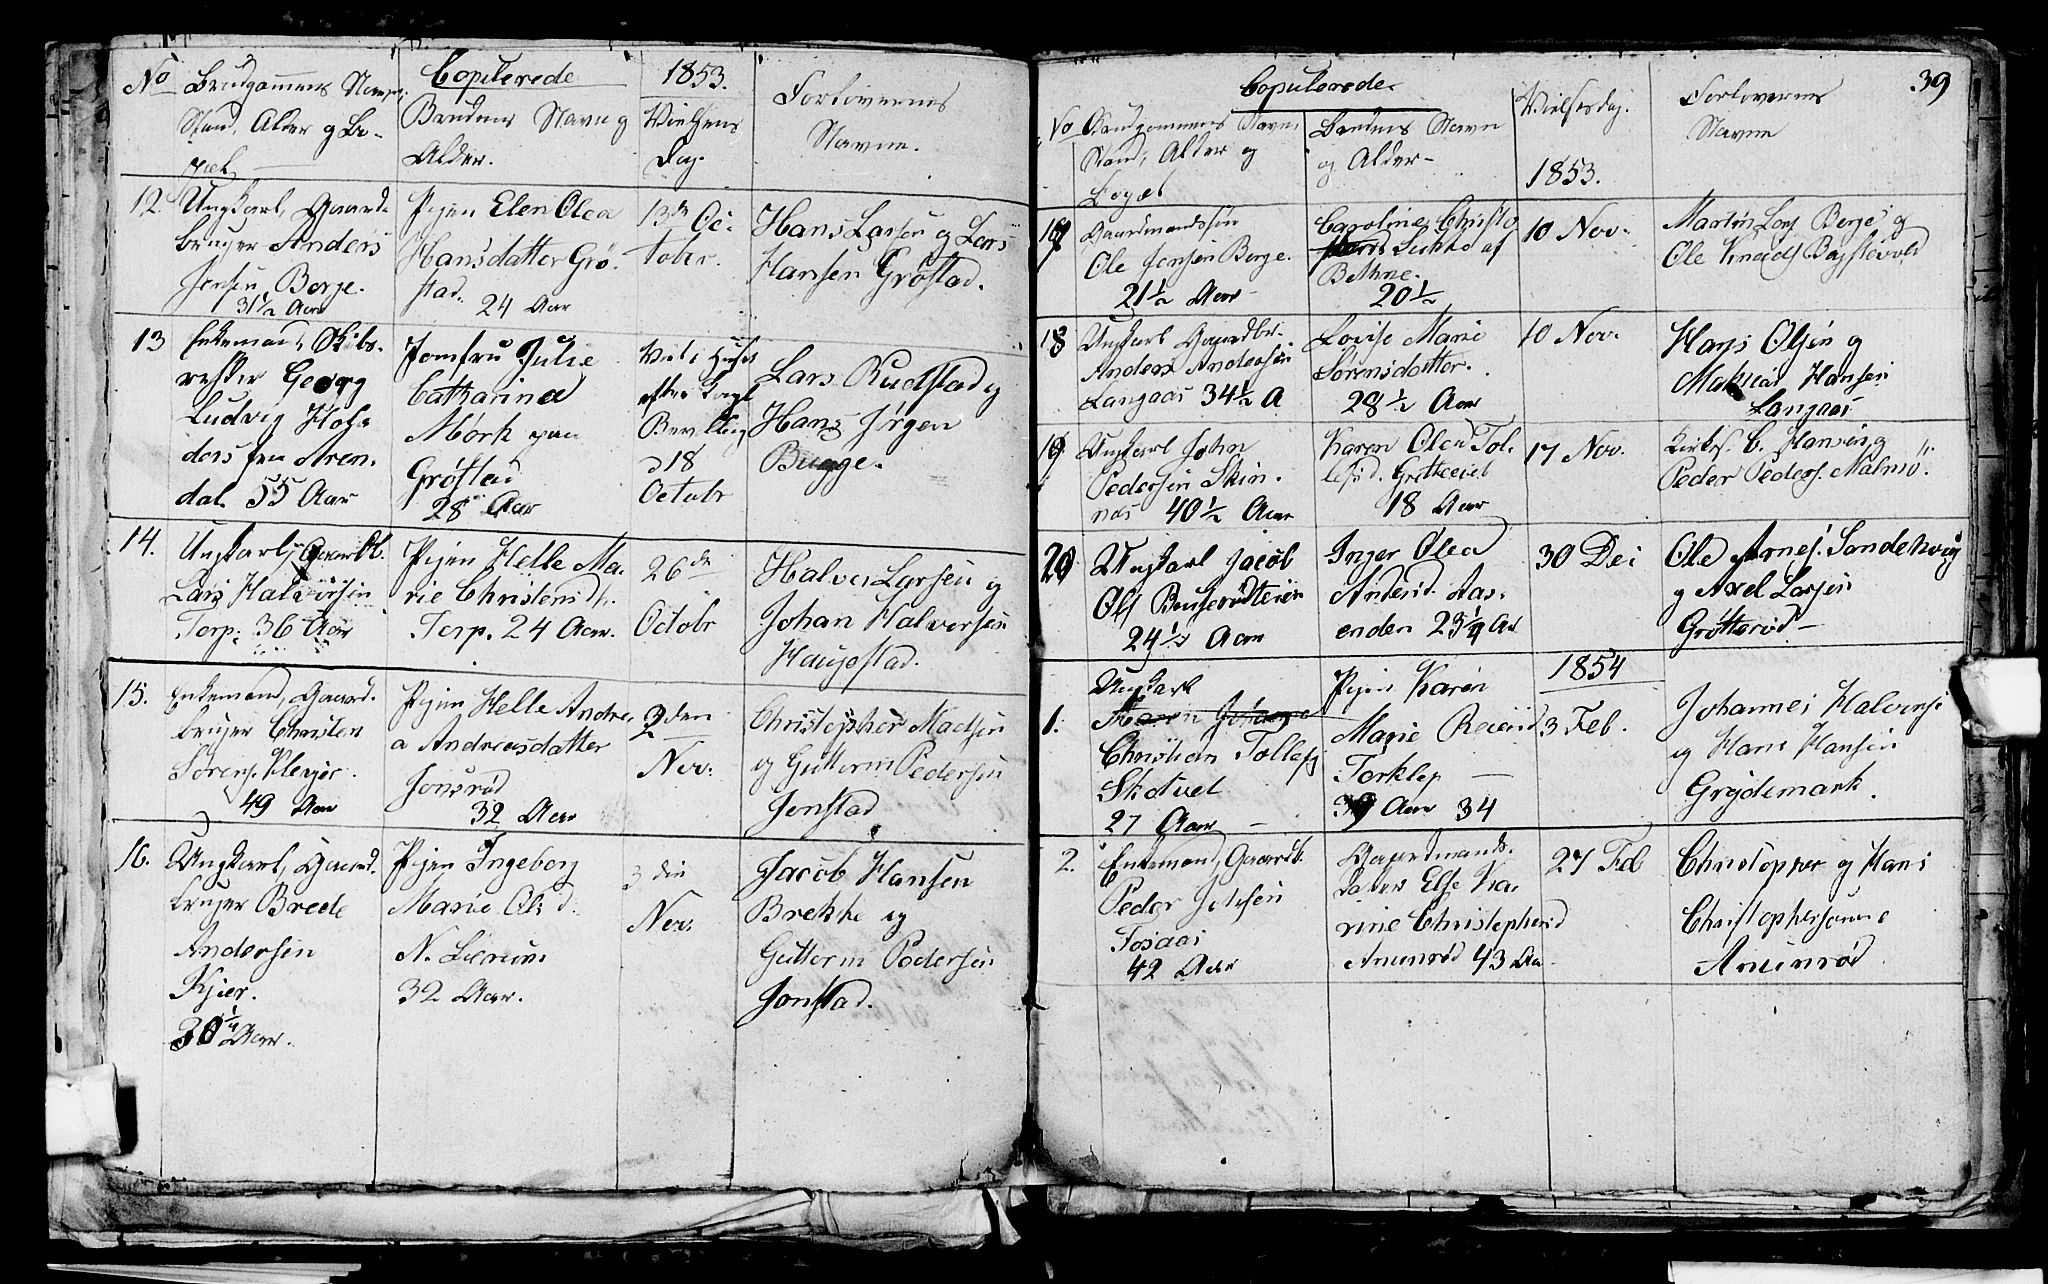 No
Brudgommens Navn,
Stand, Alder og Bo-
pæl
Copulerede
Brudens Navn og
Alder.
1853.
Vielsens
Dag.
Forlovernes
Navne.
12. Ungkarl, Gaard-
bruger Anders
Jensen Berge.
31½ Aar
Pigen Elen Olea
Hansdatter Grø-
stad. 24 Aar
13de Oc-
tobr.
Hans Larsen og Lars
Hansen Grøstad.
13 Enkemand, Skibs-
rehder Georg
Ludvig
dal. 55 Aar
Jomfru Julie
Catharina
Mørk paa
Grøstad
28 Aar
Viet i Huset
efter Kongl
Bevilling
d 18
Octobr
Lars Rudstad og
Hans Jørgen
Bugge.
14. Ungkarl, Gaardb.
Lars Halvorsen
Torp. 36 Aar
Pigen Helle Ma-
rie Christensdtr.
Torp. 24 Aar.
26de
Octobr
Halvor Larsen og
Johan Halvorsen
Haugstad.
15. Enkemand, Gaard-
bruger Christen
Sørens. Klevjer.
49 Aar
Pigen Helle Andre-
a Andreasdatter
Jonsrød
32 Aar
den
Nov.
Christopher Madsen
og Guttorm Pedersen
Jonstad
16. Ungkarl, Gaard-
bruger Brede
Andersen
Kjær.
30¼ Aar.
Pigen Ingeborg
Marie Olsd.
N. Lierum
32 Aar.
3die
Nov.
Jacob Hansen
Brekke og
Guttorm Pedersen
Jonstad.
39
Copulerede.
No Brudgommens Navn,
Stand, Alder og
Bopæl
Brudens Navn
og Alder-
Vielsesdag.
1853.
Forlovernes
Navne
17 Gaardmandssøn
Ole Jensen Berge.
21½ Aar
Caroline
af
Bethne.
20½
10 Nov.
Martin Lars Berge og
Ole
18 Ungkarl Gaardbr.
Anders Andersen
Langaas 34½ A
Lovise Marie
Sørensdatter.
28½ Aar
10 Nov.
Hans Olsen og
Mathias Hansen
Langaas
19 Ungkarl John
Pedersen Skin-
nes 40½ Aar
Karen Olea Tol-
lefsd.
18 Aar
17 Nov.
Kirks. C. Hansen og
Peder Peders. Malmø.
20 Ungkarl Jacob
Ols
24½ Aar
Inger Olea
Andersd. Aas-
enden 23¼ Ar
30 Dec
Ole Arnes. Sandehoug
og Axel Larsen
Grøtterød-
1854
1. Ungkarl
Christian Tollefs
Skotvet
27 Aar -
Pigen Karen
Marie
Torklep -
Aar 34
3 Feb.
Johannes Halvorsen
og Hans Hansen
Grydemark.
2. Enkemand, Gaardb.
Peder Jensen
Fosaas
42 Aar
Gaardmands-
datter Else Ka-
rine Christophersd
Anunrød 43 Aar
27 Feb
Christopher og Hans
Christophersønne
Anunrød.